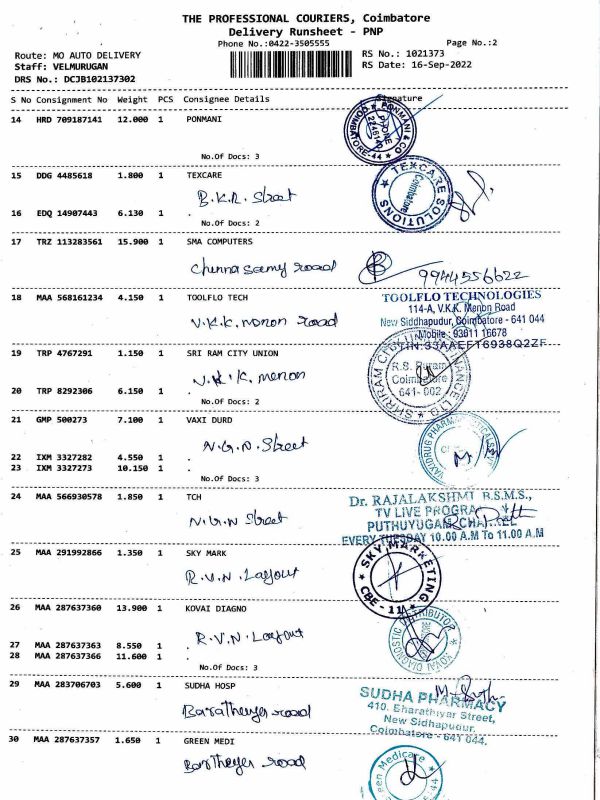 THE PROFESSIONAL COURIERS, Coimbatore
Delivery Runsheet - PNP
Phone No.:0422-3505555
Page No.:2
Route: MO AUTO DELIVERY
RS No.: 1021373
Staff: VELMURUGAN
RS Date: 16-Sep-2022
DRS No.: DCJB102137302
S No Consignment No Weight PCS Consignee Details Signature
14 HRD 709187141 12.000 1 PONMANI
PONMANI & CO
PHONE
COIMBATORE-44
No.Of Docs: 3
15 DDG 4485618 1.800 1 TEXCARE
B.K.R. Street
TEXCARE SOLUTIONS
Coimbatore
16 EDQ 14907443 6.130 1 .
No.Of Docs: 2
17 TRZ 113283561 15.900 1 SMA COMPUTERS
Chinnasamy road
9944556622
18 MAA 568161234 4.150 1 TOOLFLO TECH
V.K.K. menon road
TOOLFLO TECHNOLOGIES
114-A, V.K.K. Menon Road
New Siddhapudur, Coimbatore - 641 044
Mobile: 93611 16678
19 TRP 4767291 1.150 1 SRI RAM CITY UNION
V.K.K. menon
R.S. Puram
Coimbatore
641-002
20 TRP 8292306 6.150 1 .
No.Of Docs: 2
21 GMP 500273 7.100 1 VAXI DURD
N.G.N. Street
22 IXM 3327282 4.550 1 .
23 IXM 3327273 10.150 1 .
No.Of Docs: 3
24 MAA 566930578 1.850 1 TCH
N.G.N Street
Dr. RAJALAKSHMI B.S.M.S.,
TV LIVE PROGRA
PUTHUYUGAM CHA
EVERY TUESDAY 10.00 A.M To 11.00 A.M
25 MAA 291992866 1.350 1 SKY MARK
R.V.N. Layout
SKY MARKETING
CBE - 11
26 MAA 287637360 13.900 1 KOVAI DIAGNO
R.V.N. Layout
KOVAI DIAGNOSTIC DISTRIBUTOR
27 MAA 287637363 8.550 1 .
28 MAA 287637366 11.600 1 .
No.Of Docs: 3
29 MAA 283706703 5.600 1 SUDHA HOSP
Baratheyer road
SUDHA PHARMACY
410, Bharathiyar Street,
New Sidhapudur,
Coimbatore - 641 044.
30 MAA 287637357 1.650 1 GREEN MEDI
Baratheyer road
Green Medicare